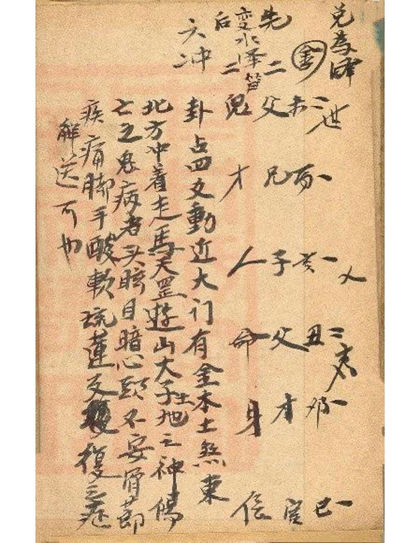 兑為澤
金
未二世
酉一
亥一
丑二
卯一
巳一
先二父兄子父才官
変水澤節
后二鬼才人命身信
六冲
卦占四爻動近大门有金木土煞東
北方冲着走馬天罡遊山大子土地之神傷
亡之鬼病者头眩目暗心頭不安骨節
疾痛脚手酸軟琉蓮反復之症
解送可也